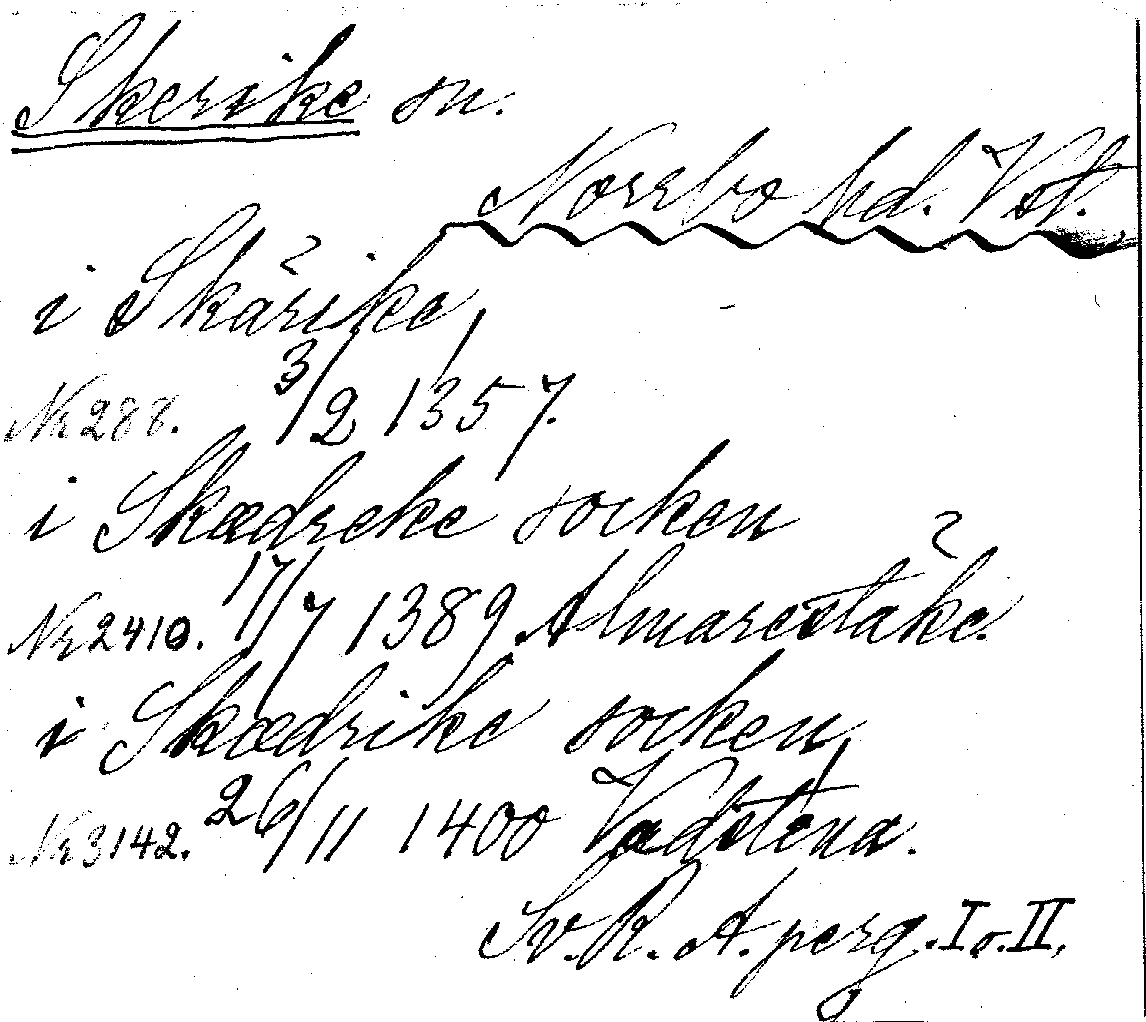 Skerike sn.
Norrbo hd. Vstm.
i Skärike
Nr 288. 3/2 1357.
i Skædreke socken
Nr 2410. 17/7 1389 Almarestäke.
i Skædrike socken
Nr 3142. 26/11 1400 Vadstena.
Sv. R. A. perg. I o. II.